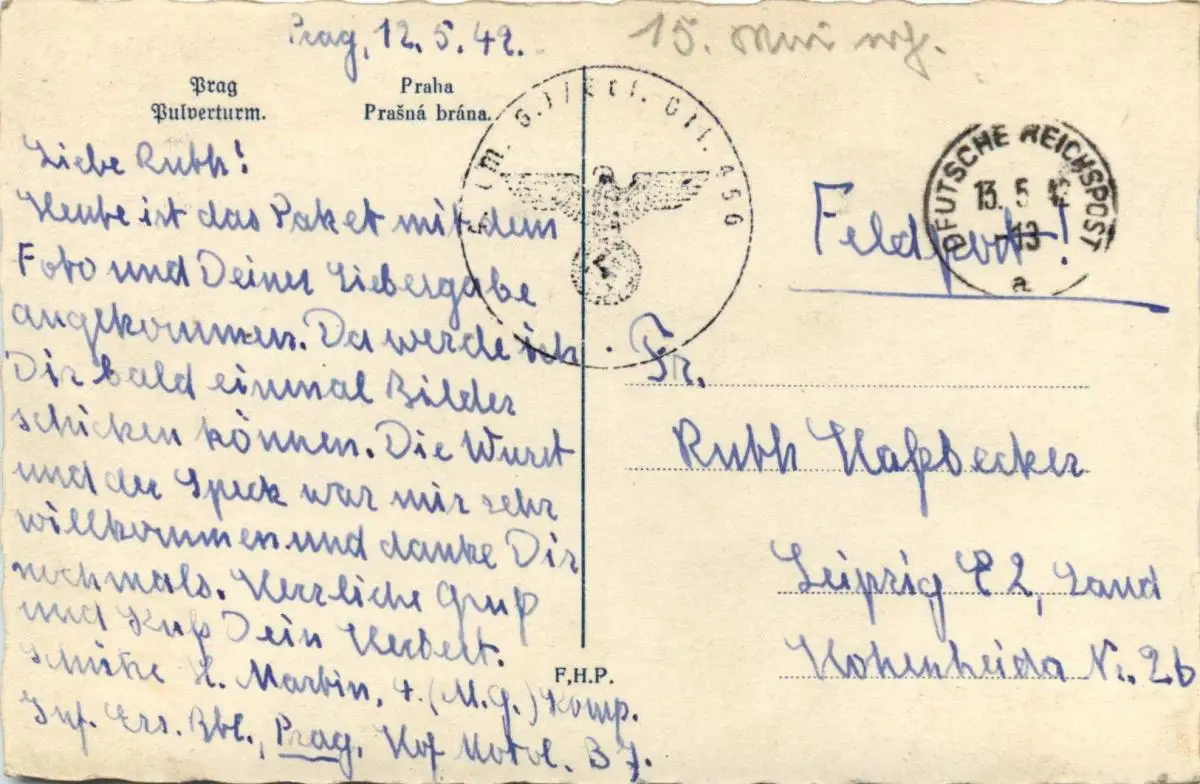 Prag, 12. 5. 42.
15.
Prag
Pulverturm.
Praha
Prašná brána.
Liebe Ruth!
Heute ist das Paket mit dem
Foto und Deiner Liebesgabe
angekommen. Da werde ich
Dir bald einmal Bilder
schicken können. Die Wurst
und der Speck war mir sehr
willkommen und danke Dir
nochmals. Herzliche Gruß
und Kuß Dein Herbert.
Schütze H. Martin, 4. (M.G.) Komp.
Inf. Ers. Btl., Prag,
F.H.P.
456
DEUTSCHE REICHSPOST
13. 5 42
-13
a
Feldpost!
Fr.
Ruth Haßbecker
Leipzig C 2, Land
Hohenheida Nr. 26